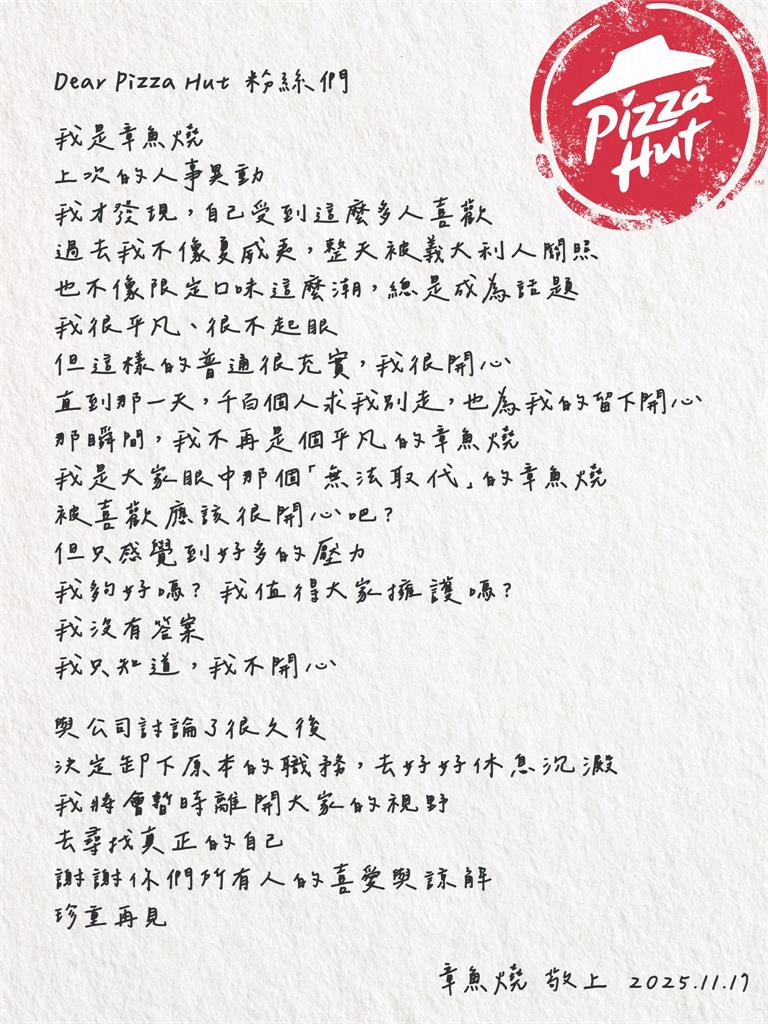 Pizza
Hut
Dear Pizza Hut 粉絲們
我是章魚燒
上次的人事異動
我才發現，自己受到這麼多人喜歡
過去我不像夏威夷，整天被義大利人關照
也不像限定口味這麼潮，總是成為話題
我很平凡、很不起眼
但這樣的普通很充實，我很開心
直到那一天，千百個人求我別走，也為我的留下開心
那瞬間，我不再是個平凡的章魚燒
我是大家眼中那個「無法取代」的章魚燒
被喜歡應該很開心吧？
但只感覺到好多的壓力
我夠好嗎？我值得大家擁護嗎？
我沒有答案
我只知道，我不開心
與公司討論了很久後
決定卸下原本的職務，去好好休息沉澱
我將會暫時離開大家的視野
去尋找真正的自己
謝謝你們所有人的喜愛與諒解
珍重再見
章魚燒 敬上 2025.11.17